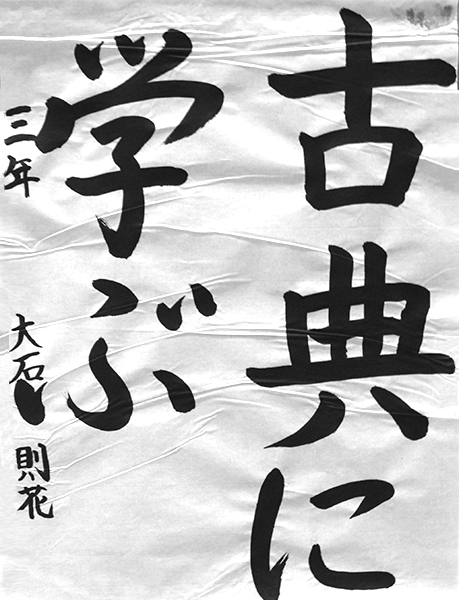 古典に
学ぶ
三年 大石 則花